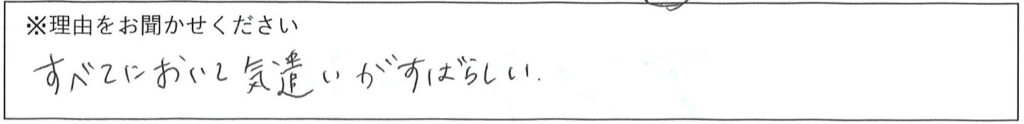 ※理由をお聞かせください
すべてにおいて気遣いがすばらしい.